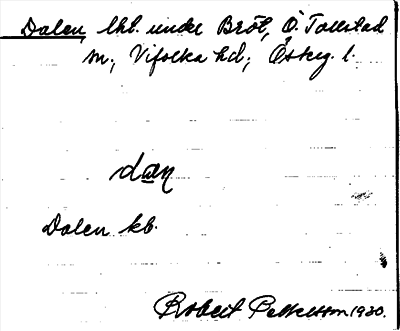 Dalen, lht. under Bröt, Ö. Tollstad
sn; Vifolka hd; Östog. l.
dɑn
Dalen kb.
Robert Pettersson 1930.